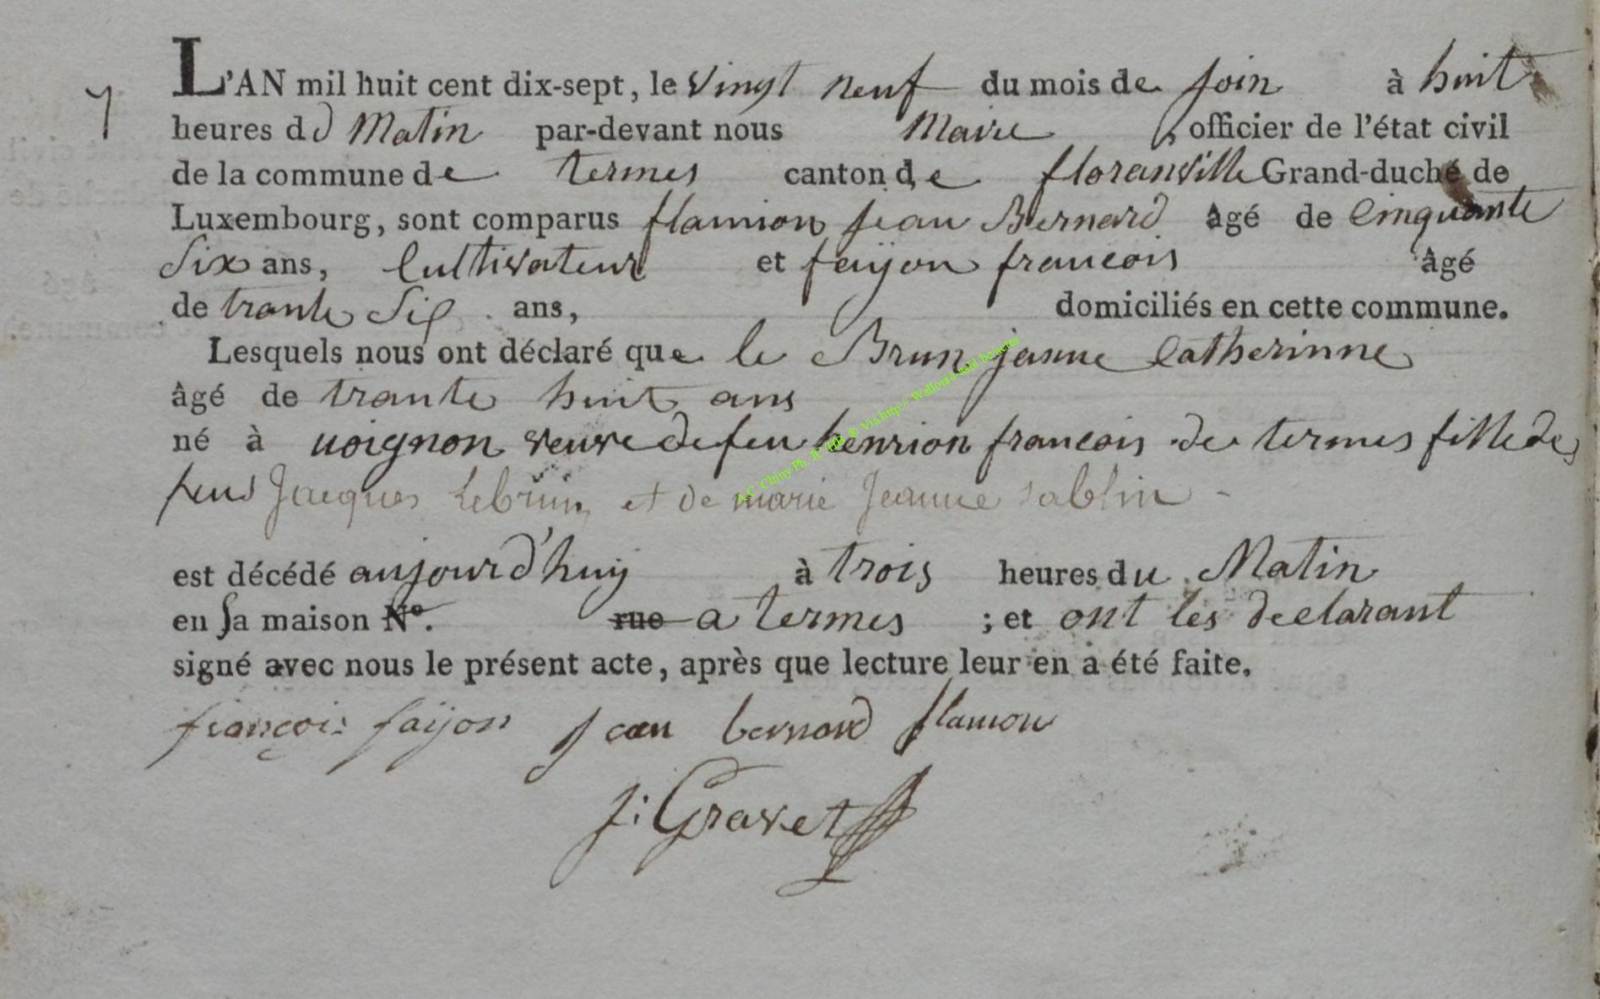 7
L'AN mil huit cent dix-sept, le vingt neuf du mois de join à huit
heures du Matin par-devant nous Maire officier de l'état civil
de la commune de termes canton de floranville Grand-duché de
Luxembourg, sont comparus flamion jean Bernard âgé de Cinquante
Six ans, Cultivateur et faÿon francois âgé
de trante Six ans, domiciliés en cette commune.
Lesquels nous ont déclaré que le Brun janne Catherinne
âgé de trante huit ans
né à uoignon veuve de feu henrion francois de termes fille de
feus Jacques Lebrun et de marie Jeanne sablin
est décédé aujourd'huy à trois heures du Matin
en sa maison N°. rue a termes ; et ont les declarant
signé avec nous le présent acte, après que lecture leur en a été faite.
françois faÿon jean bernard flamion
J: Gravet